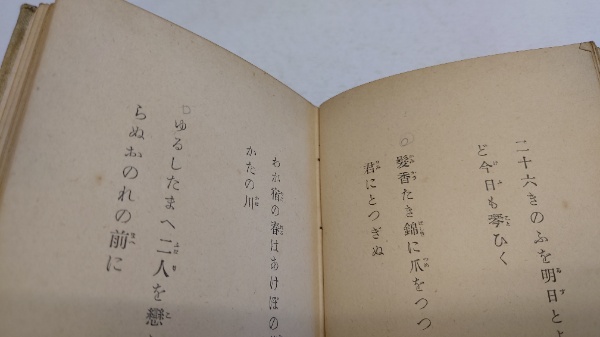 二十六きのふを明日とよ
ど今日も琴ひく
髮香たき錦に爪をつつ
君にとつぎぬ
わが宿の春はあけぼの
かたの川
ゆるしたまへ二人を戀
らぬおのれの前に